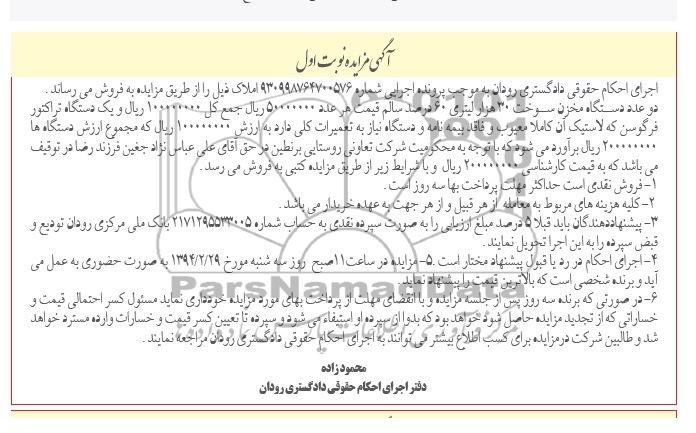 آگهی مزایده نوبت اول
اجرای احکام حقوقی دادگستری رودان به موجب پرونده اجرایی شماره ۹۳۰۹۹۸۷۶۴۷۰۰۵۷۶ املاک ذیل را از طریق مزایده به فروش می رساند .
دو عدد دستگاه مخزن سوخت ۳۰ هزار لیتری ۶۰ درصد سالم قیمت هر عدد ۵۰۰۰۰۰۰۰ ریال جمع کل ۱۰۰۰۰۰۰۰۰ ریال و یک دستگاه تراکتور
فرگوسن که لاستیک آن کاملا معیوب و فاقد بیمه نامه و دستگاه نیاز به تعمیرات کلی دارد به ارزش ۱۰۰۰۰۰۰۰۰ ریال که مجموع ارزش دستگاه ها
۲۰۰۰۰۰۰۰۰ ریال برآورد می شود که با توجه به محکومیت شرکت تعاونی روستایی برنطین در حق آقای علی عباس نژاد جغین فرزند رضا در توقیف
می باشد که به قیمت کارشناسی ۲۰۰۰۰۰۰۰۰ ریال و با شرایط زیر از طریق مزایده کتبی به فروش می رسد .
۱- فروش نقدی است حداکثر مهلت پرداخت بها سه روز است .
۲- کلیه هزینه های مربوط به معامله از هر قبیل و از هر جهت به عهده خریدار می باشد .
۳- پیشنهاددهندگان باید قبلا ۵ درصد مبلغ ارزیابی را به صورت سپرده نقدی به حساب شماره ۲۱۷۱۲۹۵۵۳۳۰۰۵ بانک ملی مرکزی رودان تودیع و
قبض سپرده را به این اجرا تحویل نمایند .
۴- اجرای احکام در رد یا قبول پیشنهاد مختار است .۵- مزایده در ساعت ۱۱ صبح روز سه شنبه مورخ ۱۳۹۴/۲/۲۹ به صورت حضوری به عمل می
آید و برنده شخصی است که بالاترین قیمت را پیشنهاد نماید .
۶- در صورتی که برنده سه روز پس از جلسه مزایده و با انقضای مهلت از پرداخت بهای مورد مزایده خودداری نماید مسئول کسر احتمالی قیمت و
خساراتی که از تجدید مزایده حاصل شود خواهد بود که بدوا از سپرده او استیفاء می شود و سپرده تا تعیین کسر قیمت و خسارات وارده مسترد خواهد
شد و طالبین شرکت در مزایده برای کسب اطلاع بیشتر می توانند به اجرای احکام حقوقی دادگستری رودان مراجعه نمایند .
محمودزاده
دفتر اجرای احکام حقوقی دادگستری رودان
ParsNamadData